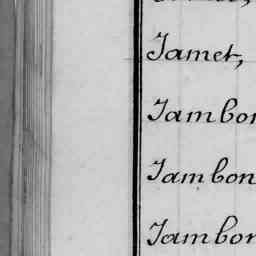 Jamet,
Jambon
Jambon
Jambon